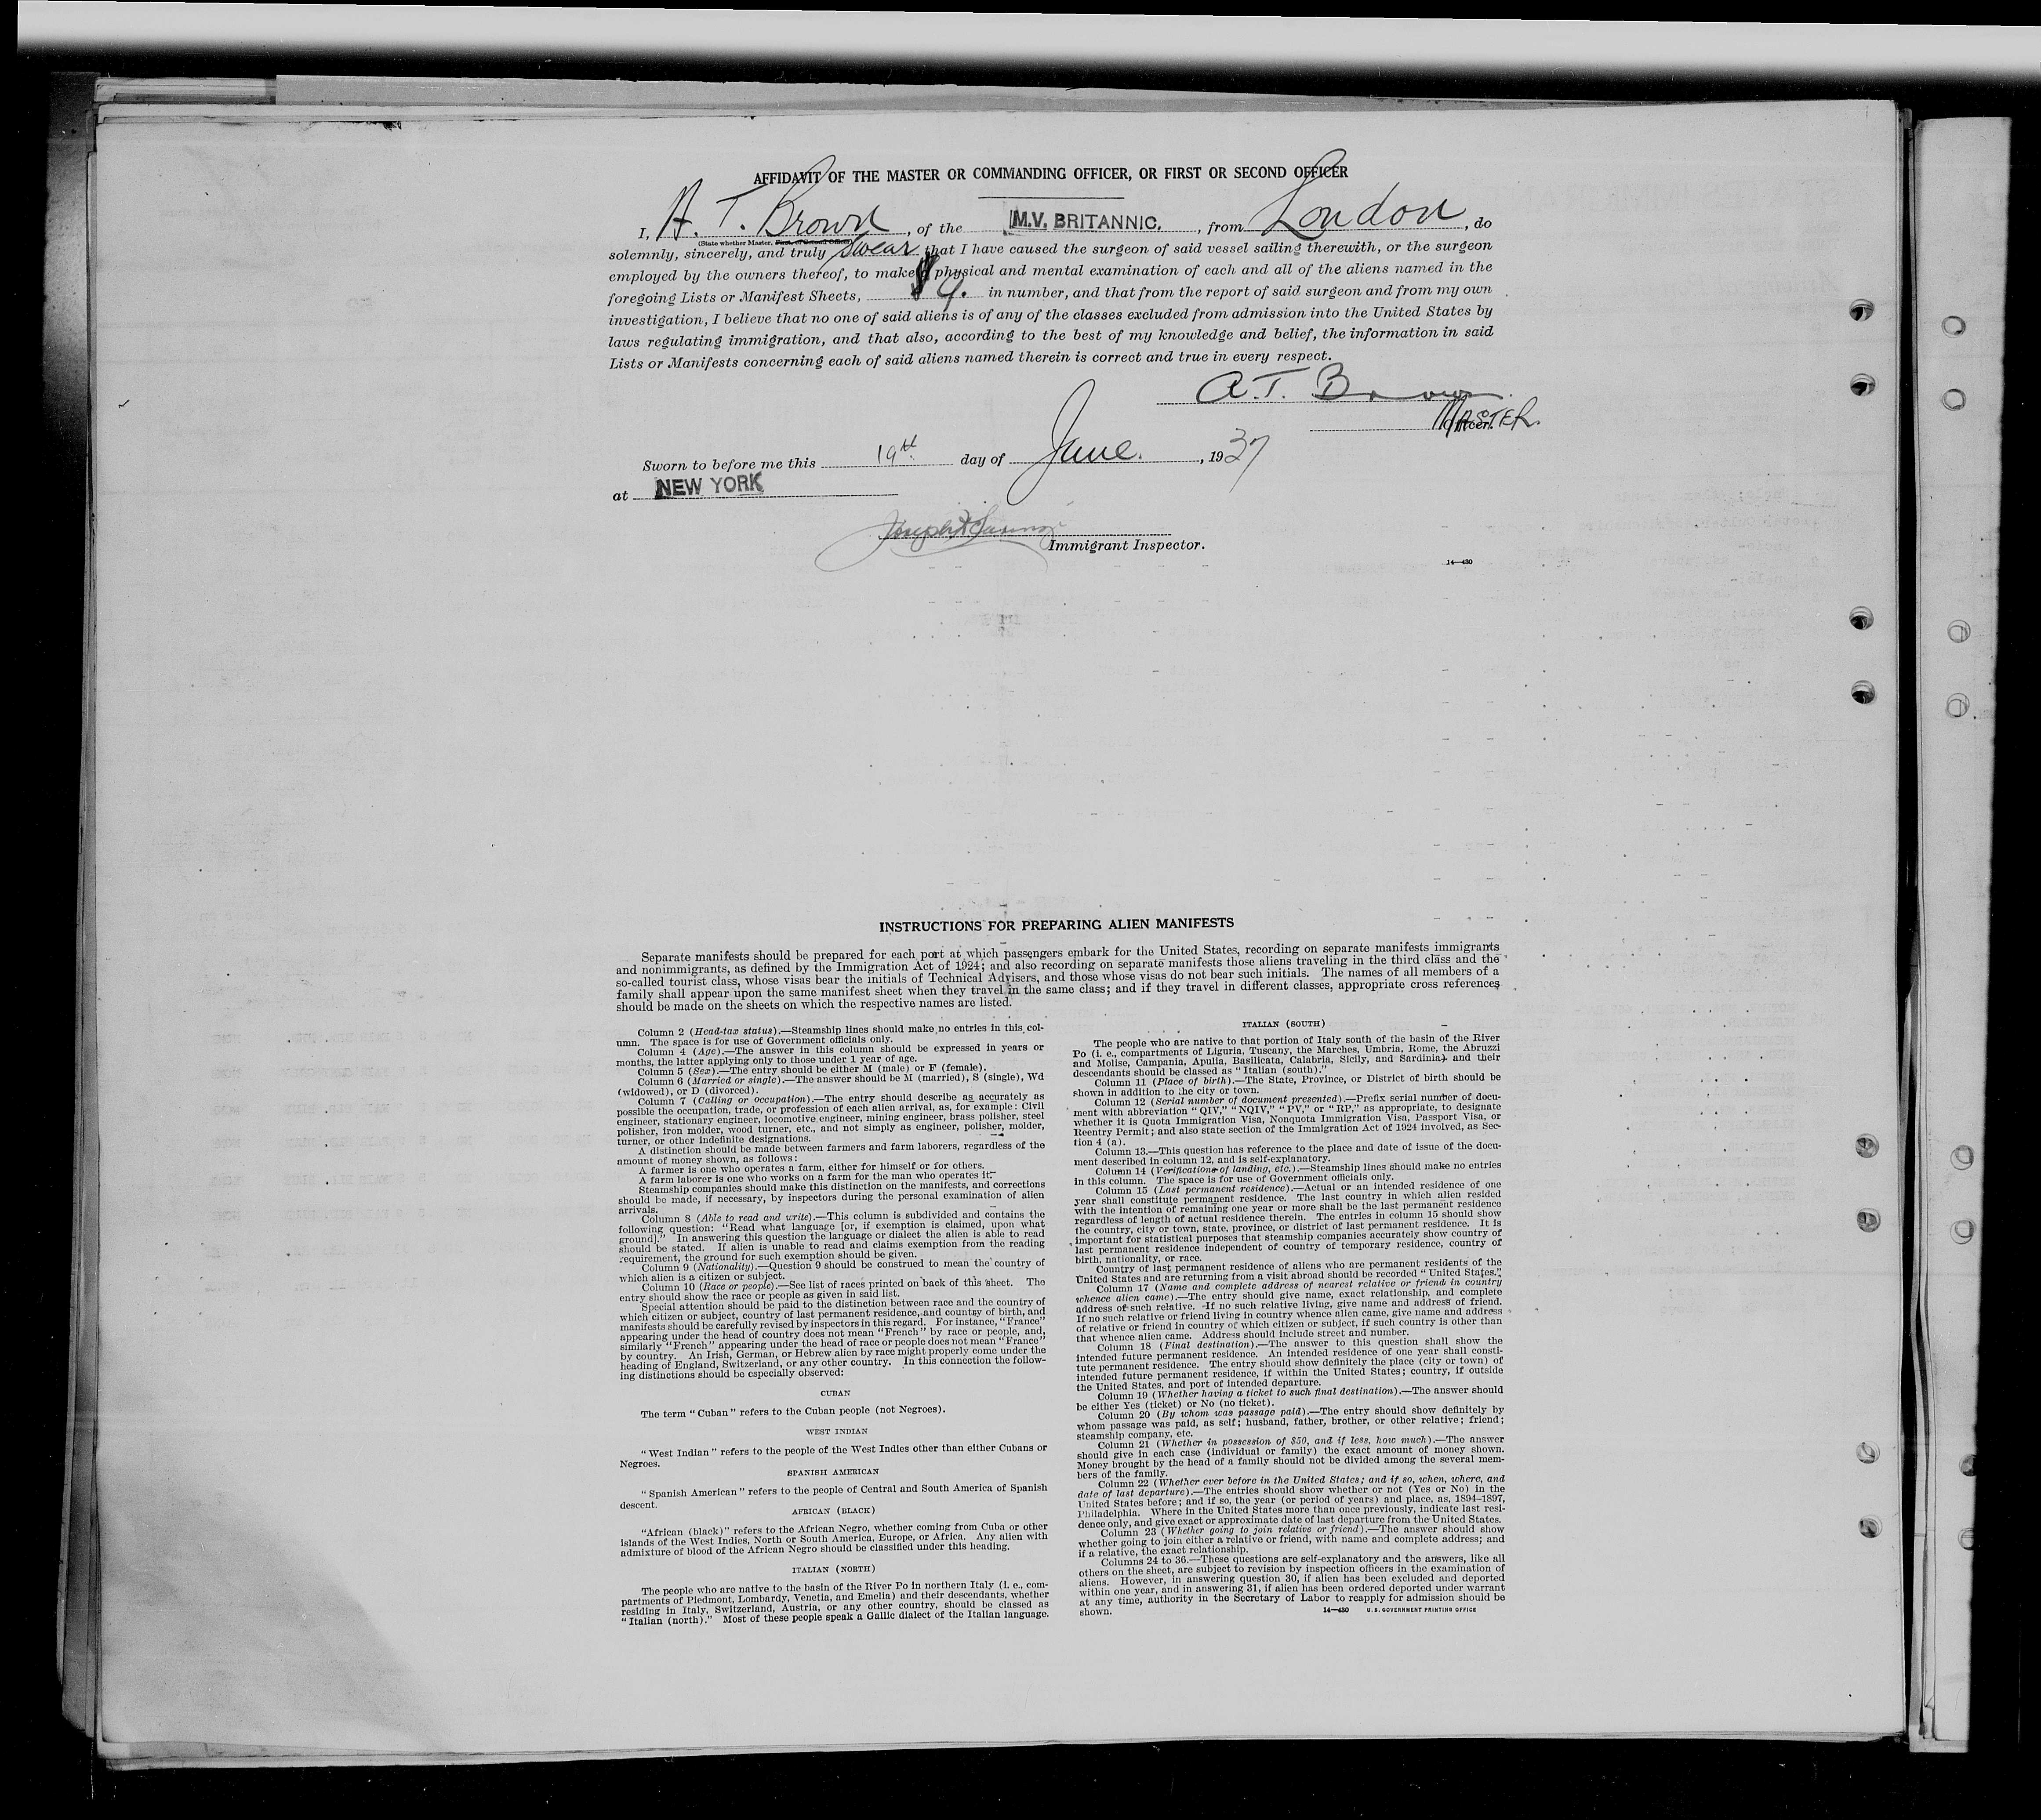 AFFIDAVIT OF THE MASTER OR COMMANDING OFFICER, OR FIRST OR SECOND OFFICER
I, A. T. Brown, of the M.V. BRITANNIC., from London, do
(State whether Master, First, or Second Officer)
solemnly, sincerely, and truly swear that I have caused the surgeon of said vessel sailing therewith, or the surgeon
employed by the owners thereof, to make physical and mental examination of each and all of the aliens named in the
foregoing Lists or Manifest Sheets, 9. in number, and that from the report of said surgeon and from my own
investigation, I believe that no one of said aliens is of any of the classes excluded from admission into the United States by
laws regulating immigration, and that also, according to the best of my knowledge and belief, the information in said
Lists or Manifests concerning each of said aliens named therein is correct and true in every respect.
A.T. Brown
MASTER.
Officer.
Sworn to before me this 19th day of June., 1937
at NEW YORK
Immigrant Inspector.
14—430
INSTRUCTIONS FOR PREPARING ALIEN MANIFESTS
Separate manifests should be prepared for each port at which passengers embark for the United States, recording on separate manifests immigrants
and nonimmigrants, as defined by the Immigration Act of 1924; and also recording on separate manifests those aliens traveling in the third class and the
so-called tourist class, whose visas bear the initials of Technical Advisers, and those whose visas do not bear such initials. The names of all members of a
family shall appear upon the same manifest sheet when they travel in the same class; and if they travel in different classes, appropriate cross references
should be made on the sheets on which the respective names are listed.
Column 2 (Head-tax status).—Steamship lines should make no entries in this col-
umn. The space is for use of Government officials only.
Column 4 (Age).—The answer in this column should be expressed in years or
months, the latter applying only to those under 1 year of age.
Column 5 (Sex).—The entry should be either M (male) or F (female).
Column 6 (Married or single).—The answer should be M (married), S (single), Wd
(widowed), or D (divorced).
Column 7 (Calling or occupation).—The entry should describe as accurately as
possible the occupation, trade, or profession of each alien arrival, as, for example: Civil
engineer, stationary engineer, locomotive engineer, mining engineer, brass polisher, steel
polisher, iron molder, wood turner, etc., and not simply as engineer, polisher, molder,
turner, or other indefinite designations.
A distinction should be made between farmers and farm laborers, regardless of the
amount of money shown, as follows:
A farmer is one who operates a farm, either for himself or for others.
A farm laborer is one who works on a farm for the man who operates it.
Steamship companies should make this distinction on the manifests, and corrections
should be made, if necessary, by inspectors during the personal examination of alien
arrivals.
Column 8 (Able to read and write).—This column is subdivided and contains the
following question: "Read what language [or, if exemption is claimed, upon what
ground]." In answering this question the language or dialect the alien is able to read
should be stated. If alien is unable to read and claims exemption from the reading
requirement, the ground for such exemption should be given.
Column 9 (Nationality).—Question 9 should be construed to mean the country of
which alien is a citizen or subject.
Column 10 (Race or people).—See list of races printed on back of this sheet. The
entry should show the race or people as given in said list.
Special attention should be paid to the distinction between race and the country of
which citizen or subject, country of last permanent residence, and country of birth, and
manifests should be carefully revised by inspectors in this regard. For instance, "France"
appearing under the head of country does not mean "French" by race or people, and,
similarly "French" appearing under the head of race or people does not mean "France"
by country. An Irish, German, or Hebrew alien by race might properly come under the
heading of England, Switzerland, or any other country. In this connection the follow-
ing distinctions should be especially observed:
CUBAN
The term "Cuban" refers to the Cuban people (not Negroes).
WEST INDIAN
"West Indian" refers to the people of the West Indies other than either Cubans or
Negroes.
SPANISH AMERICAN
"Spanish American" refers to the people of Central and South America of Spanish
descent.
AFRICAN (BLACK)
"African (black)" refers to the African Negro, whether coming from Cuba or other
islands of the West Indies, North or South America, Europe, or Africa. Any alien with
admixture of blood of the African Negro should be classified under this heading.
ITALIAN (NORTH)
The people who are native to the basin of the River Po in northern Italy (i. e., com-
partments of Piedmont, Lombardy, Venetia, and Emelia) and their descendants, whether
residing in Italy, Switzerland, Austria, or any other country, should be classed as
"Italian (north)." Most of these people speak a Gallic dialect of the Italian language.
ITALIAN (SOUTH)
The people who are native to that portion of Italy south of the basin of the River
Po (i. e., compartments of Liguria, Tuscany, the Marches, Umbria, Rome, the Abruzzi
and Molise, Campania, Apulia, Basilicata, Calabria, Sicily, and Sardinia) and their
descendants should be classed as "Italian (south)."
Column 11 (Place of birth).—The State, Province, or District of birth should be
shown in addition to the city or town.
Column 12 (Serial number of document presented).—Prefix serial number of docu-
ment with abbreviation "QIV," "NQIV," "PV," or "RP," as appropriate, to designate
whether it is Quota Immigration Visa, Nonquota Immigration Visa, Passport Visa, or
Reentry Permit; and also state section of the Immigration Act of 1924 involved, as Sec-
tion 4 (a).
Column 13.—This question has reference to the place and date of issue of the docu-
ment described in column 12, and is self-explanatory.
Column 14 (Verifications of landing, etc.).—Steamship lines should make no entries
in this column. The space is for use of Government officials only.
Column 15 (Last permanent residence).—Actual or an intended residence of one
year shall constitute permanent residence. The last country in which alien resided
with the intention of remaining one year or more shall be the last permanent residence
regardless of length of actual residence therein. The entries in column 15 should show
the country, city or town, state, province, or district of last permanent residence. It is
important for statistical purposes that steamship companies accurately show country of
last permanent residence independent of country of temporary residence, country of
birth, nationality, or race.
Country of last permanent residence of aliens who are permanent residents of the
United States and are returning from a visit abroad should be recorded "United States."
Column 17 (Name and complete address of nearest relative or friend in country
whence alien came).—The entry should give name, exact relationship, and complete
address of such relative. If no such relative living, give name and address of friend.
If no such relative or friend living in country whence alien came, give name and address
of relative or friend in country of which citizen or subject, if such country is other than
that whence alien came. Address should include street and number.
Column 18 (Final destination).—The answer to this question shall show the
intended future permanent residence. An intended residence of one year shall consti-
tute permanent residence. The entry should show definitely the place (city or town) of
intended future permanent residence, if within the United States; country, if outside
the United States, and port of intended departure.
Column 19 (Whether having a ticket to such final destination).—The answer should
be either Yes (ticket) or No (no ticket).
Column 20 (By whom was passage paid).—The entry should show definitely by
whom passage was paid, as self; husband, father, brother, or other relative; friend;
steamship company, etc.
Column 21 (Whether in possession of $50, and if less, how much).—The answer
should give in each case (individual or family) the exact amount of money shown.
Money brought by the head of a family should not be divided among the several mem-
bers of the family.
Column 22 (Whether ever before in the United States; and if so, when, where, and
date of last departure).—The entries should show whether or not (Yes or No) in the
United States before; and if so, the year (or period of years) and place, as, 1894-1897,
Philadelphia. Where in the United States more than once previously, indicate last resi-
dence only, and give exact or approximate date of last departure from the United States.
Column 23 (Whether going to join relative or friend).—The answer should show
whether going to join either a relative or friend, with name and complete address; and
if a relative, the exact relationship.
Columns 24 to 36.—These questions are self-explanatory and the answers, like all
others on the sheet, are subject to revision by inspection officers in the examination of
aliens. However, in answering question 30, if alien has been excluded and deported
within one year, and in answering 31, if alien has been ordered deported under warrant
at any time, authority in the Secretary of Labor to reapply for admission should be
shown.
14—430 U.S. GOVERNMENT PRINTING OFFICE